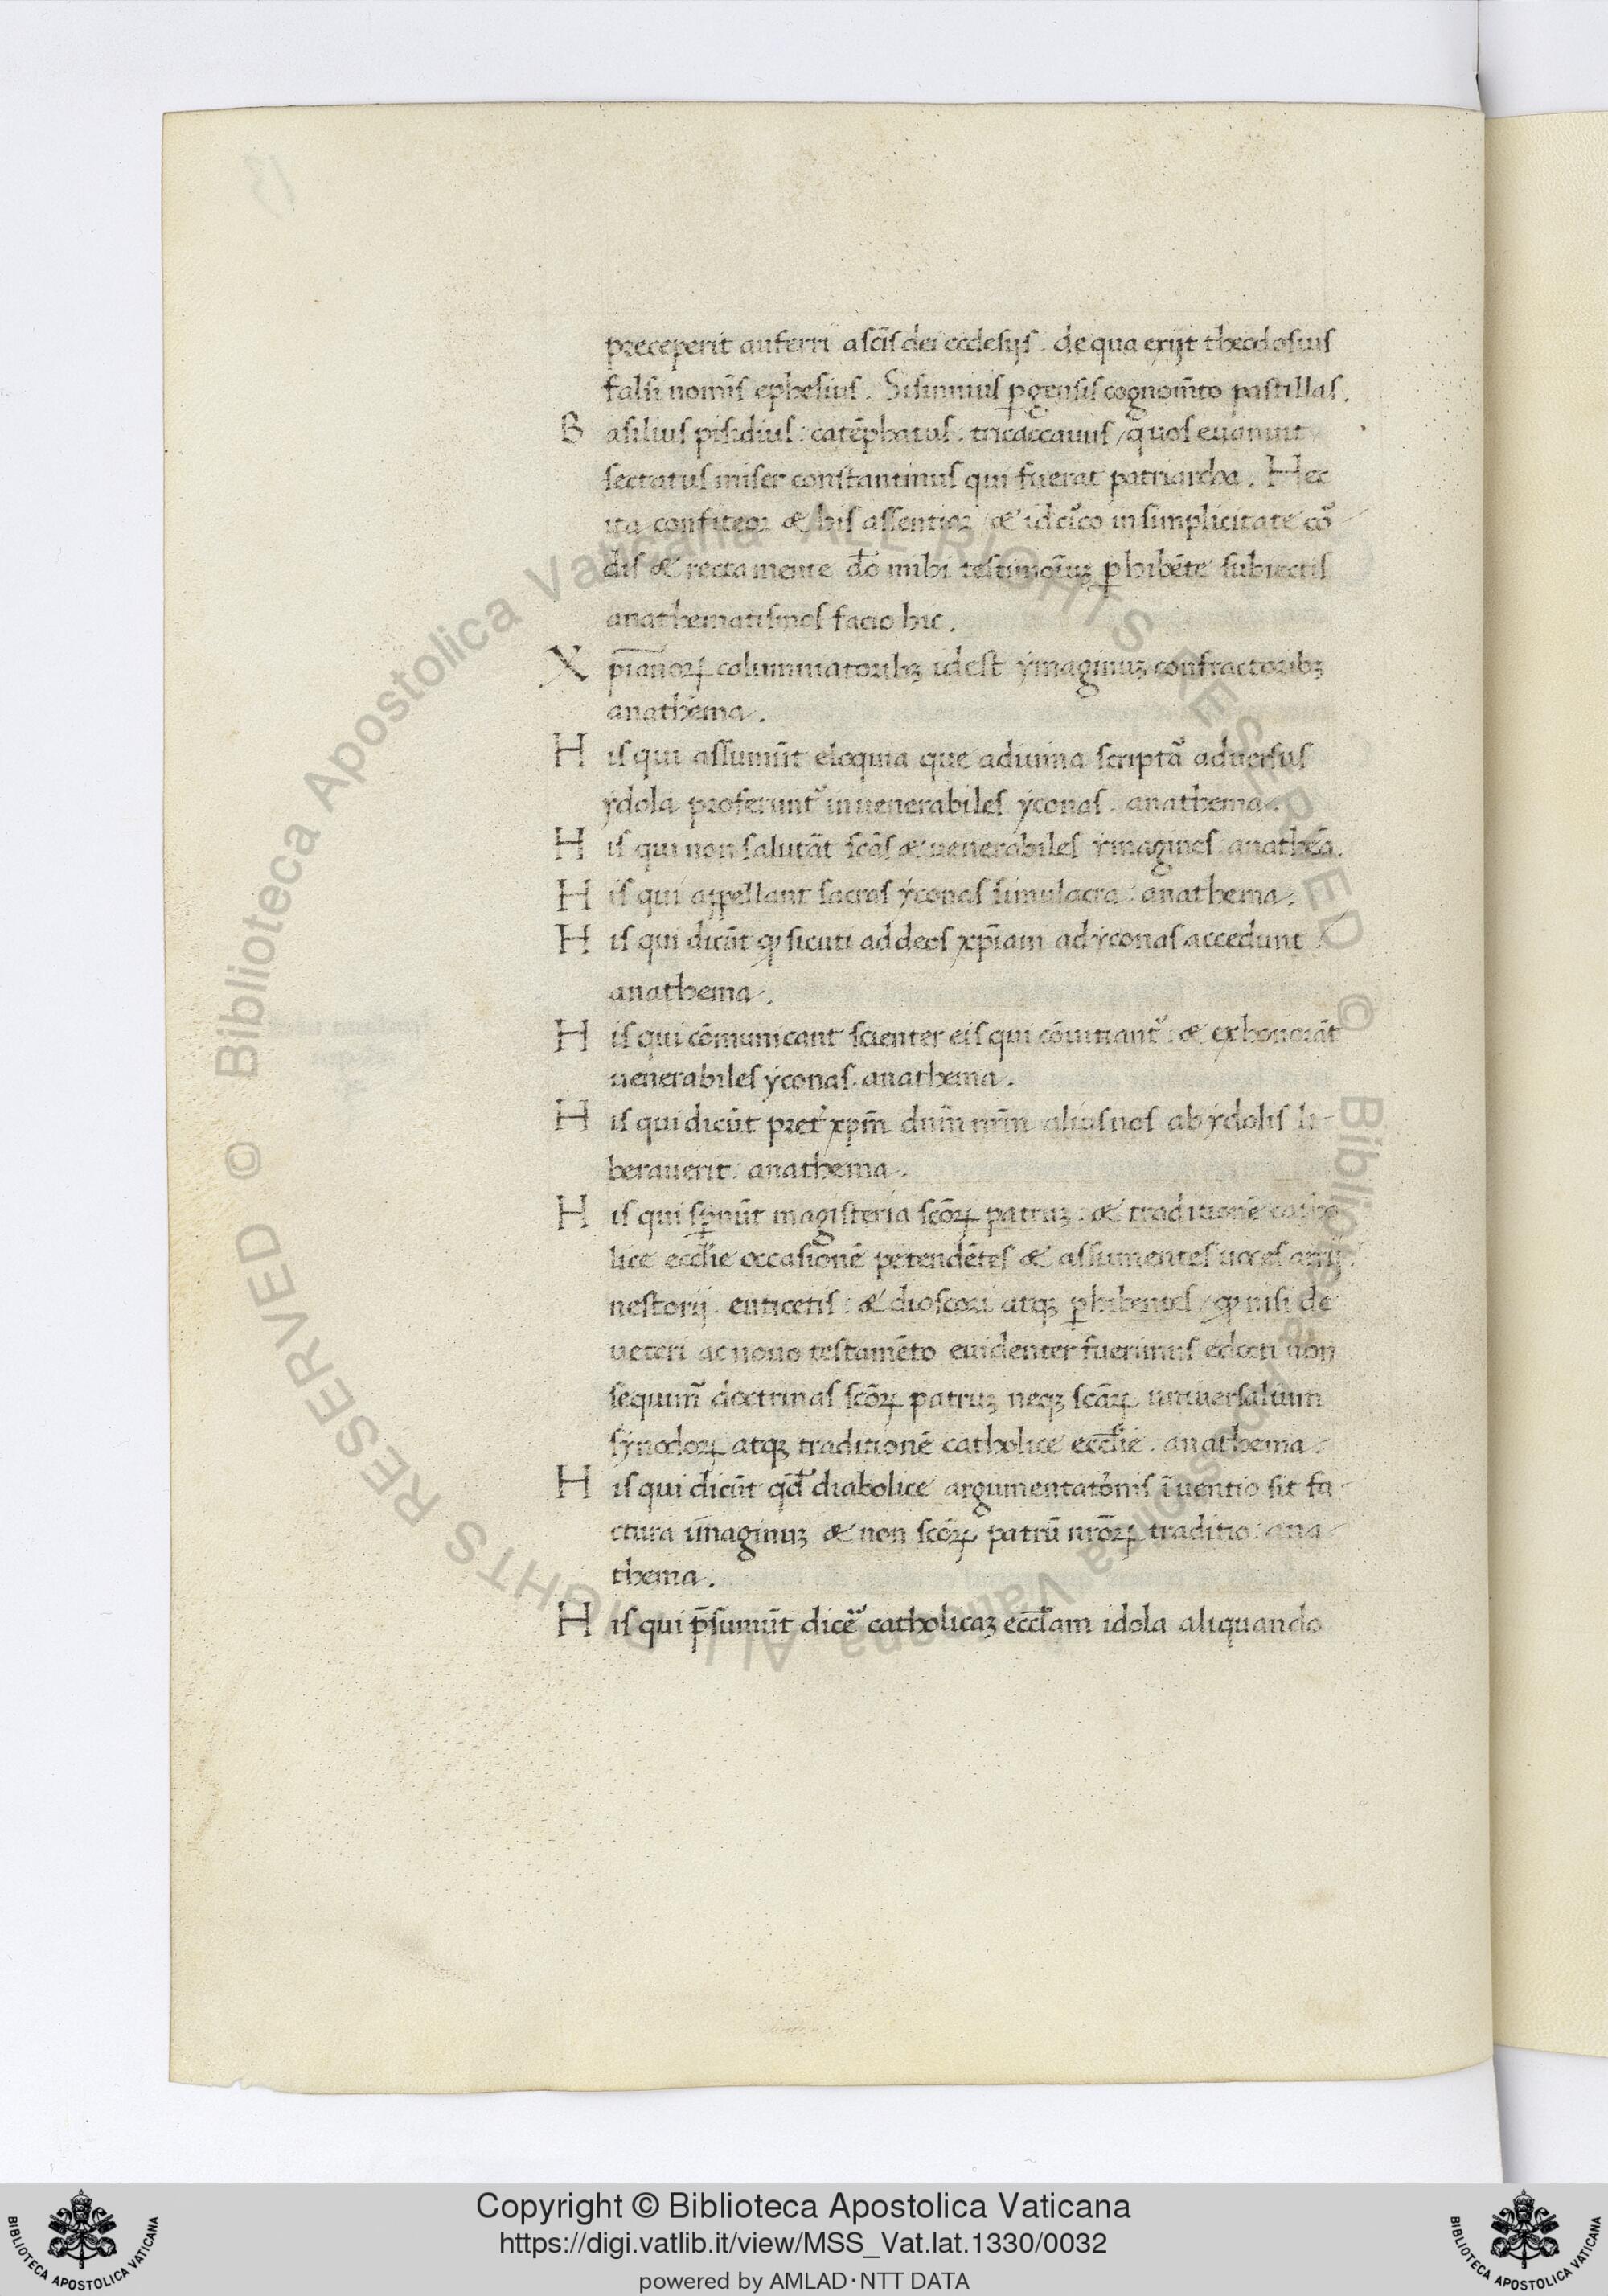 preceperit auferri a sc̄is dei ecclesijs. de qua exijt theodosius
falsi nomīs ephesius. Sisinnius ꝑgensis cognom̄to pastillas.
Basilius pisidius: catēphatus. tricaccauus / quos euanuit
sectatus miser constantinus qui fuerat patriarcha. Hec
ita confiteor & his assentior / & idcīco in simplicitate cō
dis & recta mente dō mihi testimoniuꝫ ꝑhibēte subiectis
anathematismos facio hic.
Xp̄ianoꝝ calumniatoribꝫ id est ymaginuꝫ confractoribꝫ
anathema.
His qui assumūt eloquia que a diuina scriptā aduersus
ydola proferunt᷑ in uenerabiles yconas. anathema.
His qui non salutāt sc̄as & uenerabiles ymagines: anathēa.
His qui appellant sacras yconas simulacra: anathema.
His qui dicūt ꝙ sicuti ad deos xp̄iani ad yconas accedunt
anathema.
His qui cōmunicant scienter eis qui cōuitiant᷑: & exhonorāt
uenerabiles yconas. anathema.
His qui dicūt pret᷑ xp̄m dn̄m nr̄m alius nos ab ydolis li-
berauerit: anathema.
His qui sꝑnūt magisteria sc̄oꝝ patruꝫ: & traditionē catho
lice eccl̄ie occasionē petendētes & assumentes uoces arrij
nestorij. euticetis: & dioscori atqꝫ ꝑhibentes / ꝙ nisi de
ueteri ac nouo testamēto euidenter fuerimus edocti non
sequim᷑ doctrinas sc̄oꝝ patruꝫ neqꝫ sc̄aꝝ uniuersalium
synodoꝝ atqꝫ traditionē catholice eccl̄ie. anathema.
His qui dicūt qd̄ diabolice argumentatōnis īuentio sit fa
ctura īmaginuꝫ & non sc̄oꝝ patrū nr̄oꝝ traditio: ana
thema.
His qui p̄sumūt dicē catholicaꝫ eccl̄iam idola aliquando
Copyright © Biblioteca Apostolica Vaticana
https://digi.vatlib.it/view/MSS_Vat.lat.1330/0032
powered by AMLAD·NTT DATA
© Biblioteca Apostolica Vaticana ALL RIGHTS RESERVED © Biblioteca Apostolica Vaticana ALL RIGHTS RESERVED
BIBLIOTECA APOSTOLICA VATICANA
BIBLIOTECA APOSTOLICA VATICANA